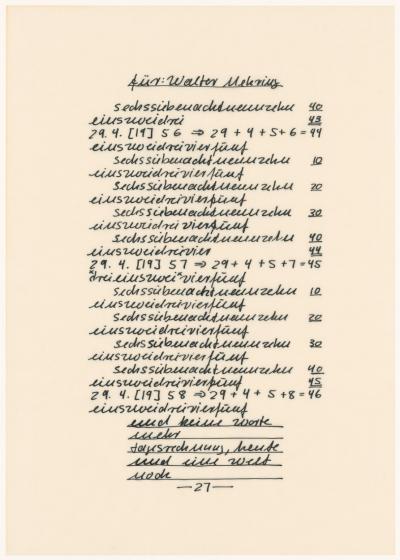 für: Walter Mehring
sechssiebenachtneunzehn 40
einszweidrei 43
29.4. [19] 56 ⇒ 29 + 4 + 5 + 6 = 44
einszweidreivierfünf
sechssiebenachtneunzehn 10
einszweidreivierfünf
sechssiebenachtneunzehn 20
einszweidreivierfünf
sechssiebenachtneunzehn 30
einszweidreivierfünf
sechssiebenachtneunzehn 40
einszweidreivier 44
29.4. [19] 57 ⇒ 29 + 4 + 5 + 7 = 45
"drei einszwei" vierfünf
sechssiebenachtneunzehn 10
einszweidreivierfünf
sechssiebenachtneunzehn 20
einszweidreivierfünf
sechssiebenachtneunzehn 30
einszweidreivierfünf
sechssiebenachtneunzehn 40
einszweidreivierfünf 45
29.4. [19] 58 ⇒ 29 + 4 + 5 + 8 = 46
einszweidreivierfünf
und keine worte
mehr
tagesrechnung, heute
und eine welt
noch
—27—